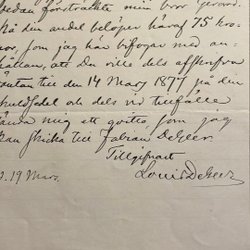 bedan förstrakte min bror Gerard.
På den andel belöper häraf 75 kro-
nor, som jag här bifogar med an-
hållan, att Du ville dels afskrifva
räntan till den 14 Mars 1877 på din
skuldsedel och dels vid tillfälle
sända mig ett qvitto, som jag
kan skicka till Fabian DeGeer.
Tillgifnast
Louis DeGeer
d. 19 Mars.